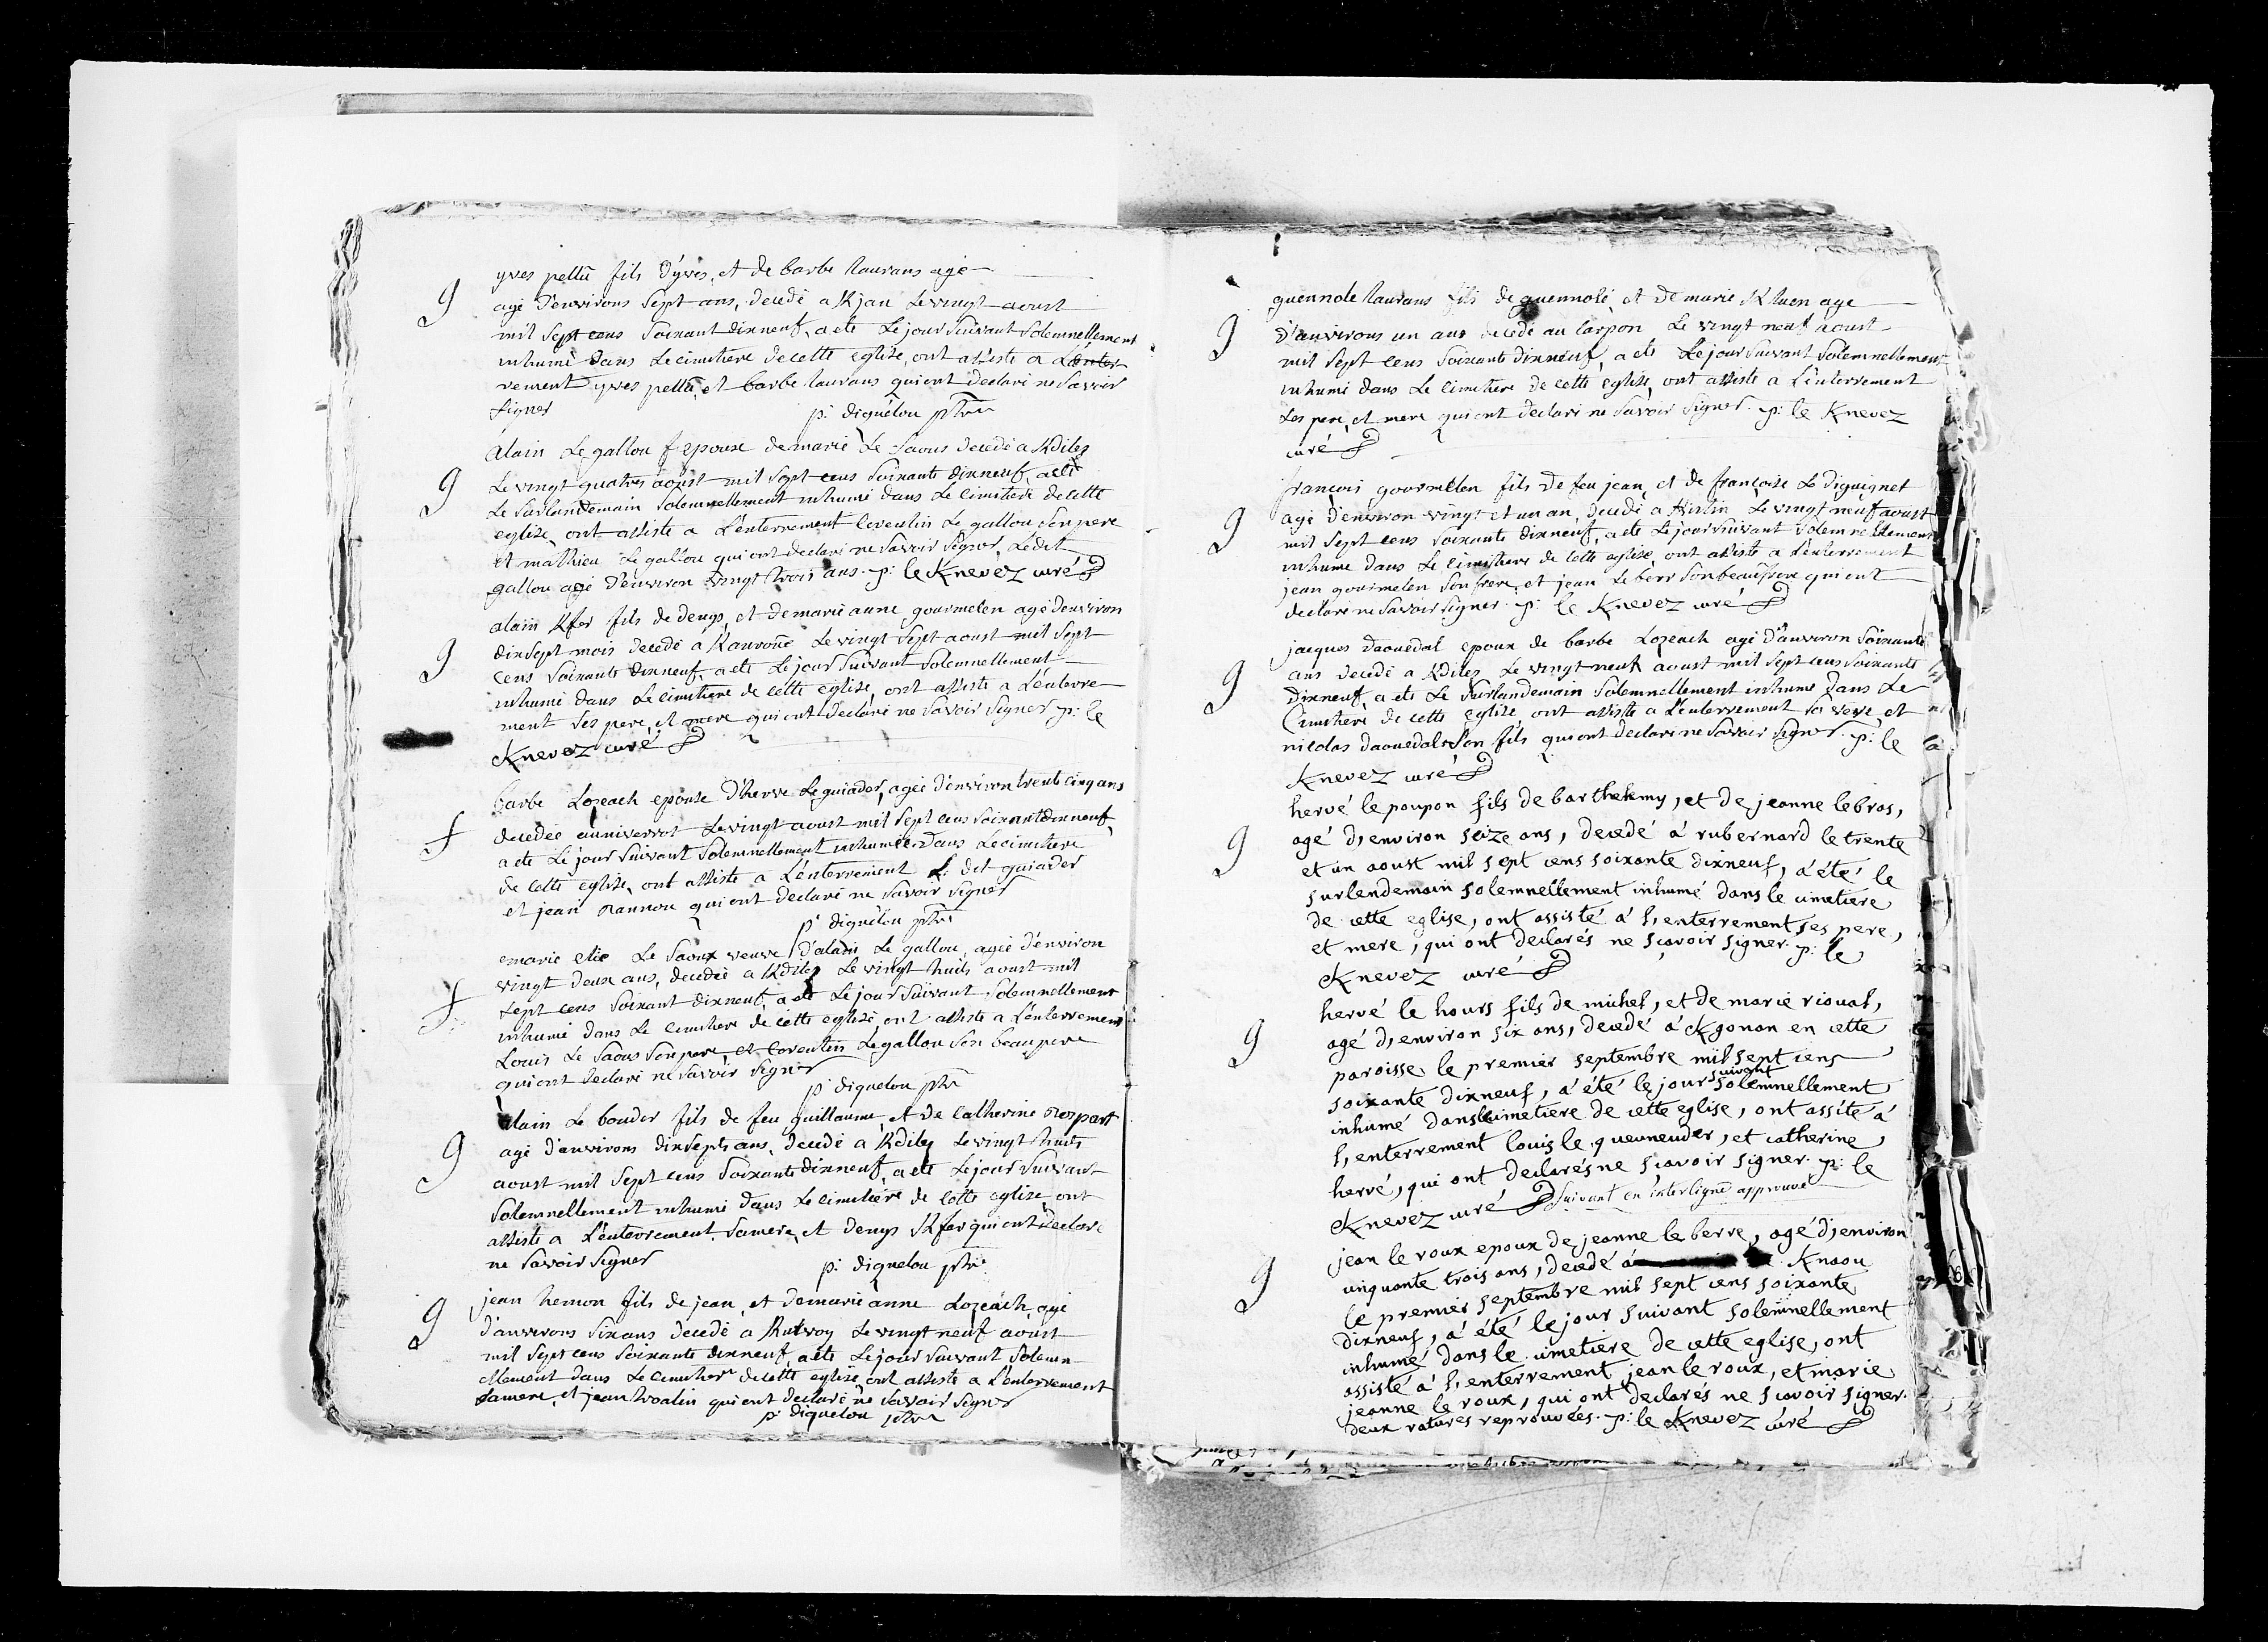 yves pellu fils d'yves, et de barbe laurans agé
g
agé d'environs Sept ans, decedé a Kjan Le vingt aoust
mil Sept cens Soixant dixneuf, a eté Le jour Suivant Solemnellement
inhumé dans Le cimitiere de cette eglise, ont assiste a L'enter
rement yves pellu, et barbe laurans qui ont declaré ne Savoir
Signer p: diquélou ptre
alain Le gallou f epoux de marie Le Saous decedé a Kdiles
g
Le vingt quatre aoust mil Sept cens Soixante dixneuf, a eté
Le Surlandemain Solemnellement inhumé dans Le cimitiere de cette
eglise, ont assiste a L'enterrement Corentin Le gallou Son pere
et mathieu Le gallou qui ont declaré ne Savoir Signer, Ledit
gallou agé d'environ vingt trois ans. p: le Knevez curé
alain Kfer fils de denys, et de marie anne gourmelen agé d'environ
g
dixSept mois decedé a Le vingt Sept aoust mil Sept
cens Soixante dixneuf, a eté Le jour Suivant Solemnellement
inhumé dans Le cimitiere de cette eglise, ont assiste a L'enterre
ment Ses pere, et mere qui ont declaré ne Savoir Signer p: le
Knevez curé
barbe Lozeach epouse d'herve Le guiader, agée d'environ trente cinq ans
f
decedée Le vingt aoust mil Sept cens Soixant dixneuf,
a eté Le jour Suivant Solemnellement inhumée dans Le cimitiere
de cette eglise, ont assiste a L'enterrement Le dit guiader
et jean nannou qui ont declaré ne Savoir Signer
p: diquélou ptre
marie elie Le Saoux veuve d'alain Le gallou, agée d'environ
vingt deux ans, decedée a Kdiles Le vingt huit aoust mil
f
Sept cens Soixant dixneuf, a eté Le jour Suivant Solemnellement
inhumé dans Le cimitiere de cette eglise, ont assiste a L'enterrement
Louis Le Saous Son pere, et Corentin Le gallou Son beaupere
qui ont declaré ne Savoir Signer
p: diquelou ptre
alain Le bouder fils de feu guillaume, et de Catherine rospart
g
agé d'environs dixSept ans, decedé a Kdiles Le vingt huit
aoust mil Sept cens Soixante dixneuf, a eté Le jour Suivant
Solemnellement inhumé dans Le cimitiere de cette eglise, ont
assiste a L'enterrement Sa mere, et denys Kfer qui ont declaré
ne Savoir Signer p: diquelou ptre
g
jean hemon fils de jean, et de marie anne Lozeach, agé
d'environs Six ans decedé a Le vingt neuf aoust
mil Sept cens Soixante dixneuf, a eté Le jour Suivant, Solemn
ellement dans Le cimitiere de cette eglise, ont assiste a L'enterrement
Sa mere, et jean troalin qui ont declaré ne Savoir Signer
p: diquelou ptre
guennole laurans fils de guennolé, et de marie age
g
d'anvirons un ans decedé au Carpon Le vingt neuf aoust
mil Sept cens Soixante dixneuf, a eté Le jour Suivant Solemnellement
inhumé dans Le cimitiere de cette eglise, ont assiste a L'enterrement
Les pere, et mere qui ont declaré ne Savoir Signer. p: le Knevez
curé
francois gourmelen fils de feu jean, et de francoise Le diguignet
g
agé d'environ vingt et un an, decedé a Le vingt neuf aoust
mil Sept cens Soixante dixneuf, a eté Le jour Suivant Solemnellement
inhumé dans Le cimitiere de cette eglise, ont assiste a L'enterrement
jean gourmelen Son frere, et jean Le berr Son beaufrere qui ont
declaré ne Savoir Signer. p: le Knevez curé
jacques daouedal epoux de barbe Lozeach agé d'anviron Soixante
g
ans decedé a Kdiles Le vingt neuf aoust mil Sept cens Soixante
dixneuf, a eté Le Surlandemain Solemnellement inhumé dans Le
Cimitiere de cette eglise, ont assiste a L'enterrement Sa veve, et
nicolas daouedal Son fils qui ont declaré ne Savoir Signer. p: le
Knevez curé
hervé le poupon fils de barthelemy, et de jeanne le bras,
g
agé d'environ seize ans, decedé á rubernard le trente
et un aoust mil sept cens soixante dixneuf, á été le
surlendemain solemnellement inhumé dans le cimetiere
de cette eglise, ont assisté á l'enterrement ses pere,
et mere, qui ont declarés ne sçavoir signer. p: le
Knevez curé
hervé le hours fils de michel, et de marie rioual,
g
agé d'environ six ans, decedé á Kgonan en cette
paroisse le premier septembre mil sept cens
soixante dixneuf, á été le jour suivant solemnellement
inhumé dans le cimetiere de cette eglise, ont assité á
l'enterrement louis le queuneuder, et catherine
hervé, qui ont declarés ne scavoir signer. p: le
Knevez curé Suivant en interligne approuvé
jean le roux epoux de jeanne le berre, agé d'environ
g
cinquante trois ans, decedé á Knaou
le premier septembre mil sept cens soixante
dixneuf, á été le jour suivant solemnellement
inhumé dans le cimetiere de cette eglise, ont
assisté á l'enterrement jean le roux, et marie
jeanne le roux, qui ont declarés ne scavoir signer.
deux ratures reprouvées. p: le Knevez curé